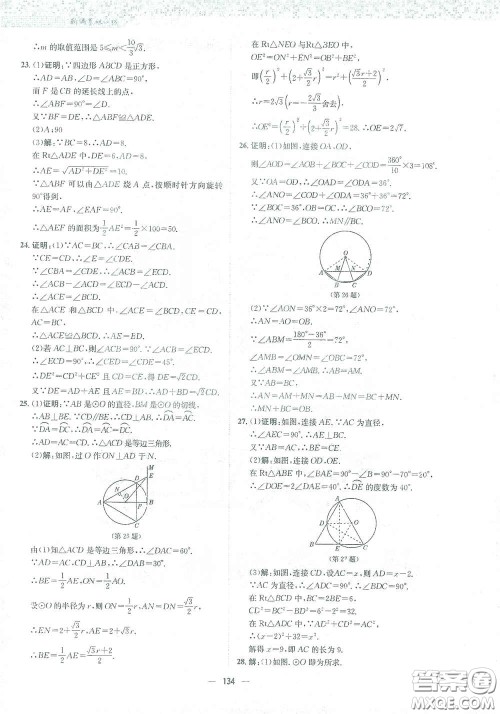 ∴m 的取值范围是 5≤m<10/3√3.
23. (1)证明:∵四边形 ABCD 是正方形,
∴AD=AB,∠D=∠ABC=90°,
而 F 是 CB 的延长线上的点,
∴∠ABF=90°=∠D.
又∵BF=DE,∴△ADE≌△ABF.
(2)A;90
(3)解:∵BC=8,∴AD=8.
在 Rt△ADE 中,DE=6,AD=8,
∴AE=√(AD²+DE²)=10.
∵△ABF 可以由△ADE 绕 A 点,按顺时针方向旋转
90°得到,
∴AE=AF,∠EAF=90°,
∴△AEF 的面积为 1/2 AE²=1/2×100=50.
24. 证明:(1)∵AC=BC,∴∠CAB=∠CBA.
∵CE=CD,∴∠CED=∠CDE.
又∵∠CAB=∠CED,
∴∠ACB=∠ECD,
∴∠ACE=∠BCD.
在△ACE 和△BCD 中,∠ACE=∠BCD,CE=CD,
AC=BC,
∴△ACE≌△BCD,∴AE=BD.
(2)若 AC⊥BC,则∠ACB=90°,
∴∠ECD=90°,∠CED=∠CDE=45°.
∴DE²=CD²+CE² 且 CD=CE,得 DE=√2CD.
又∵DE=AD+AE 且 AE=BD,∴AD+BD=√2CD.
25. (1)证明:∵AB 是⊙O 的直径,BM 是⊙O 的切线,
∴AB⊥BE. ∵CD∥BE,∴CD⊥AB,
∴DA=AC. ∵DA=DC,∴DA=AC=DC,
∴AD=AC=CD,∴△ACD 是等边三角形.
(2)解:如图,过 O 作 ON⊥AD 于 N.
M
D
E
N
A
O
B
C
(第25题)
由(1)知△ACD 是等边三角形,∴∠DAC=60°.
∵AD=AC,CD⊥AB,∴∠DAB=30°,
∴BE=1/2AE,ON=1/2AO.
设⊙O 的半径为 r,则 ON=1/2r,AN=DN=√3/2r,
∴EN=2+√3/2r,
∴BE=1/2AE=(√3r+2)/2.
在 Rt△NEO 与 Rt△BEO 中,
OE²=ON²+NE²=OB²+BE²,
即(r/2)²+(2+√3/2r)²=r²+((√3r+2)/2)².
∴r=2√3(r=-2√3/3舍去).
∴OE²=(r/2)²+(2+√3/2r)²=28,∴OE=2√7.
26. 证明:(1)如图,连接 OA,OD,
则∠AOD=∠AOB+∠BOC+∠COD=360°/10×3=108°.
又∵OA=OD,
∴∠OAD=∠ODA=36°,
∴∠ANO=∠OAD+∠AOB=36°+36°=72°.
∵∠BOC=36°,OB=OC,∴∠BCO=72°,
∴∠ANO=∠BCO.∴MN∥BC.
O
A
M
N
D
B
C
(第26题)
(2)∵∠AON=36°×2=72°,∠ANO=72°,
∴AN=AO,∠AMB=∠OMN=72°.
∵∠ABM=(180°−36°)/2=72°,
∴∠ABM=∠AMB.∴AB=AM.
又∵AN=AM+MN,AB=BC,
∴AO=BC+MN.
27. (1)证明:如图,连接 AE.∵AC 为直径,
∴∠AEC=90°,∴AE⊥BC.
又∵AB=AC,∴BE=CE.
(2)解:如图,连接 OD,OE.
在 Rt△ABE 中,∠BAE=90°−∠B=90°−70°=20°,
∴∠DOE=2∠DAE=40°,∴DE 的度数为 40°.
A
D
O
B
E
C
(第27题)
(3)解:如图,连接 CD,设 AC=x,则 AD=x−2.
∵AC 为直径,∴∠ADC=90°,∠BDC=90°.
在 Rt△BDC 中,BD=2,BC=2BE=6,
CD²=BC²−BD²=6²−2²=32.
在 Rt△ADC 中,AD²+CD²=AC²,
∴(x−2)²+32=x²,
解得 x=9,即 AC 的长为 9.
28. 解:(1)如图,⊙O 即为所求.
134